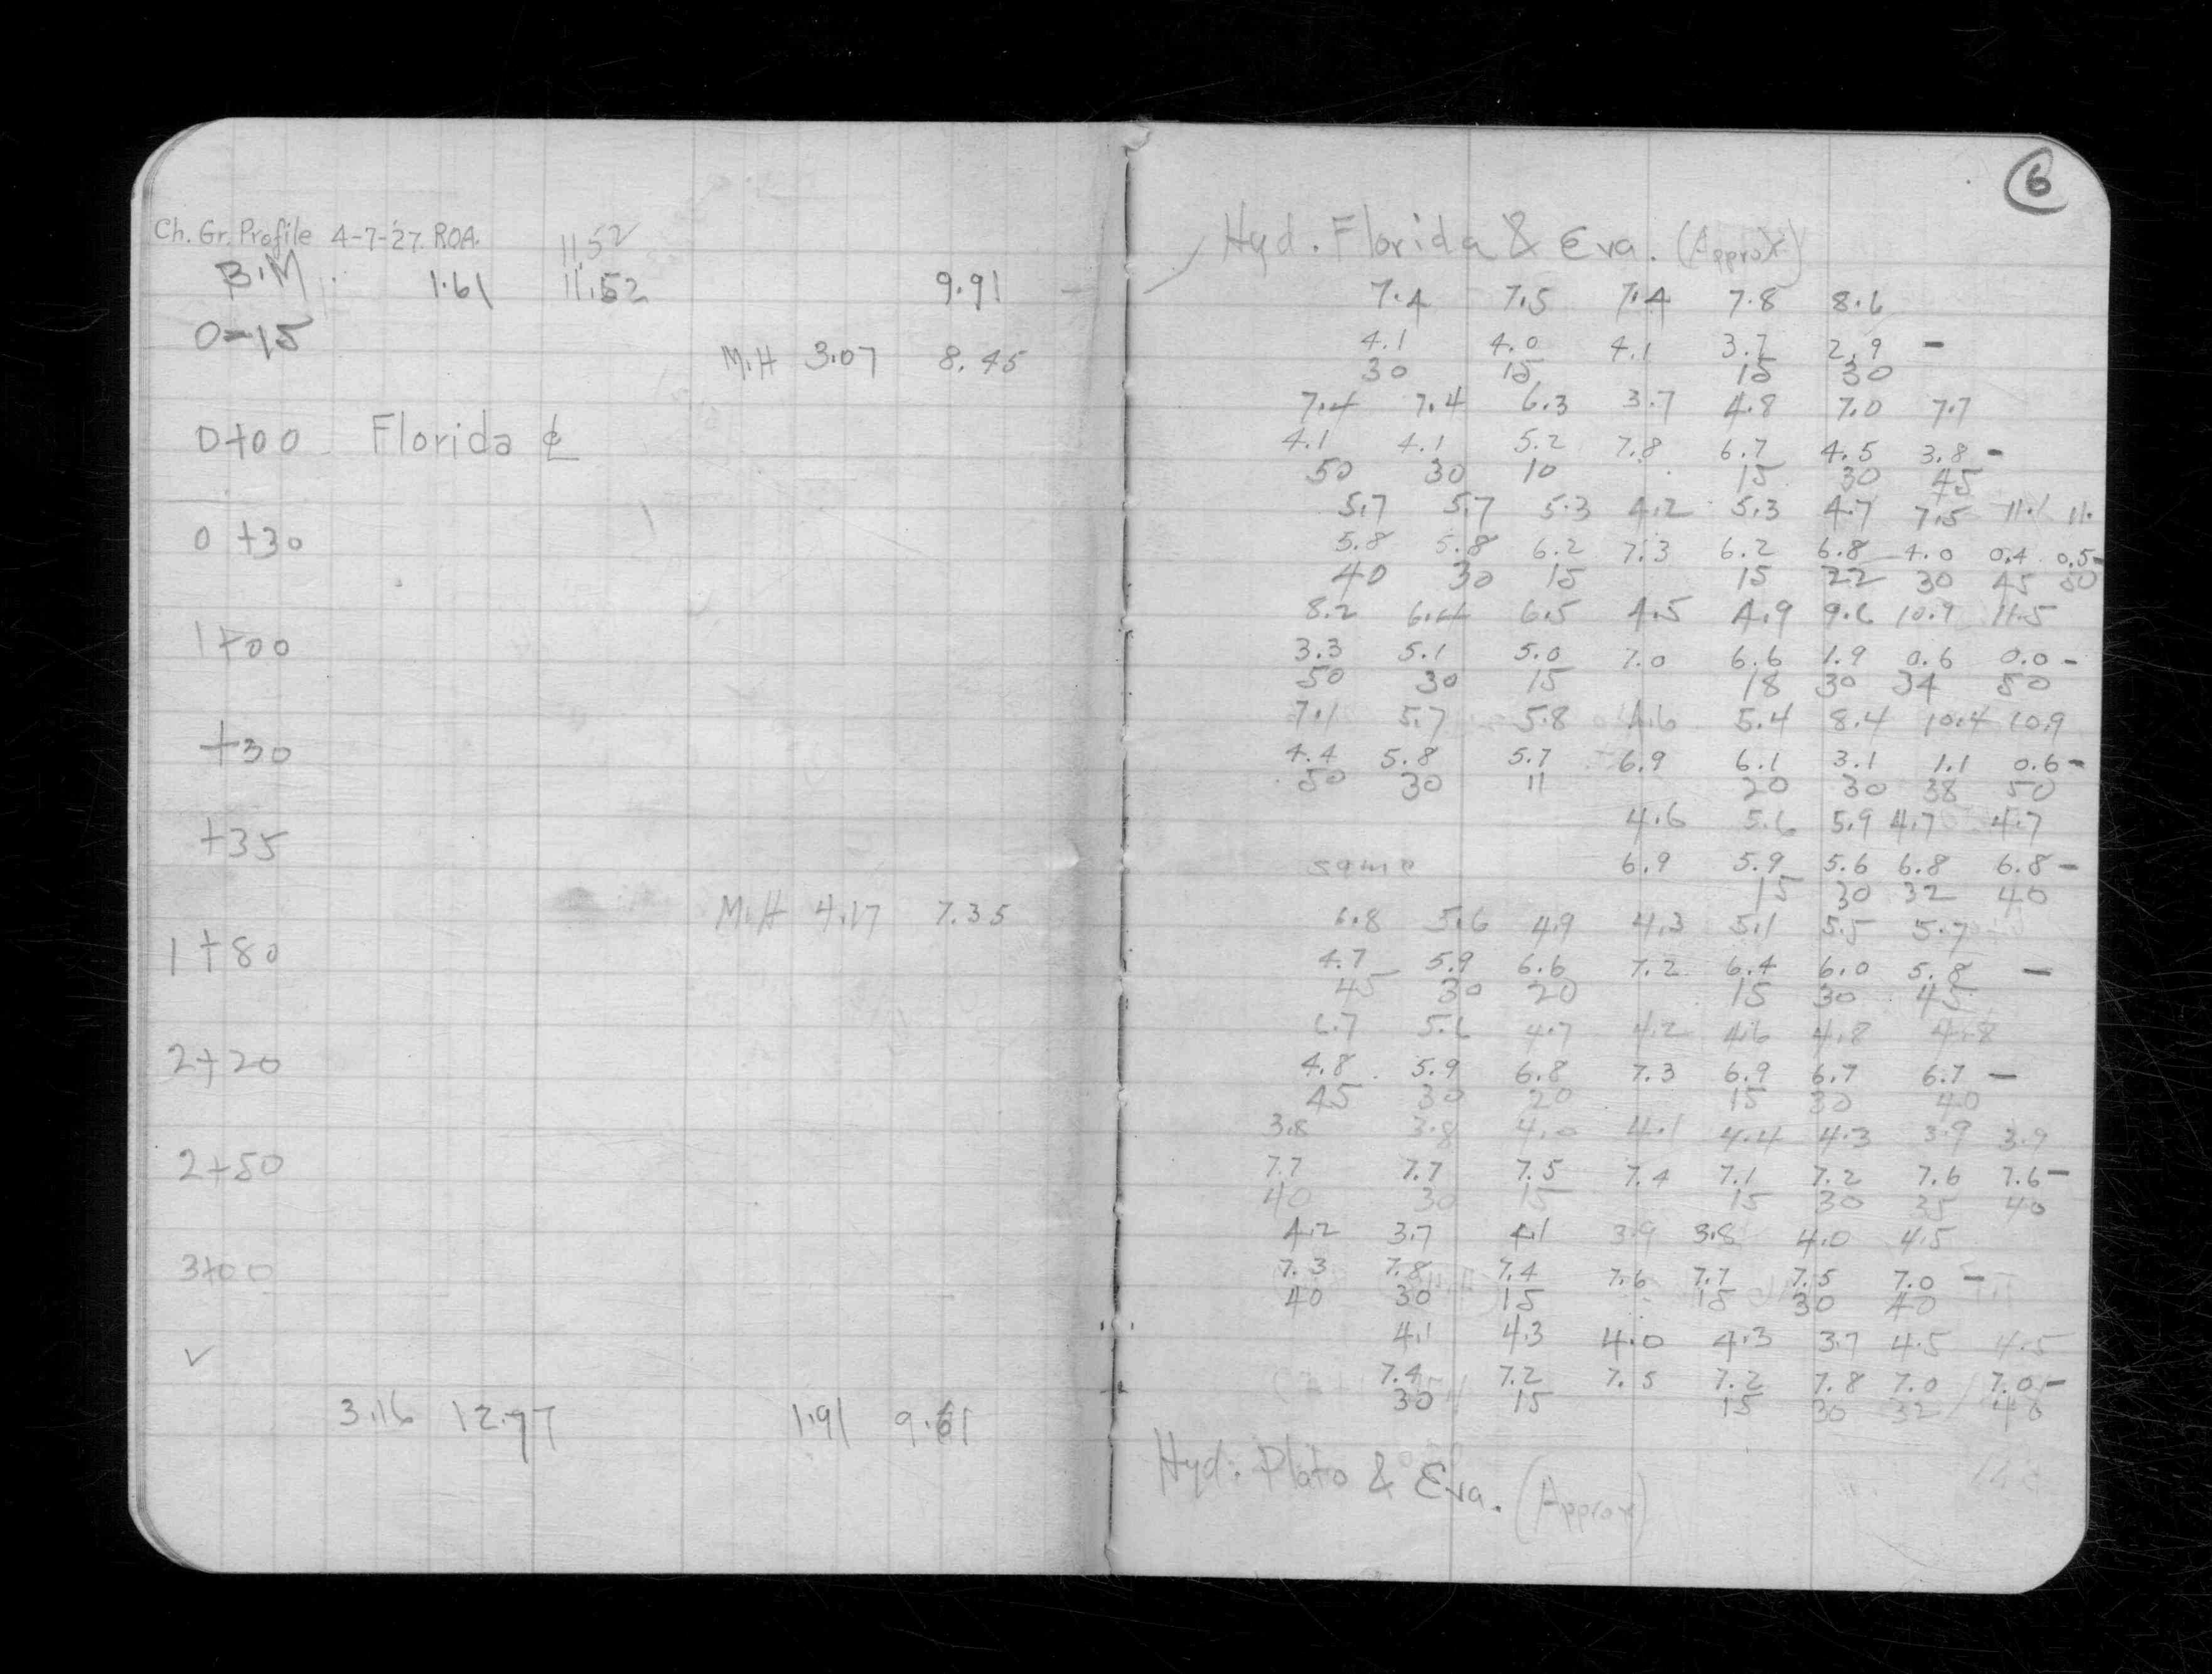 Ch. Gr. Profile 4-7-'27. ROA. 11.52
B.M 1.61 11.52 9.91
0-15
M.H 3.07 8.45
0+00 Florida ℄
0+30
1+00
+30
+35
M.H 4.17 7.35
1+80
2+20
2+50
3+00
✓
3.16 12.77 1.91 9.61
6
Hyd. Florida & Eva. (Approx)
7.4 7.5 7.4 7.8 8.6
4.1 4.0 4.1 3.7 2.9 -
30 15 15 30
7.4 7.4 6.3 3.7 4.8 7.0 7.7
4.1 4.1 5.2 7.8 6.7 4.5 3.8 -
50 30 10 15 30 45
5.7 5.7 5.3 4.2 5.3 4.7 7.5 11.1 11.
5.8 5.8 6.2 7.3 6.2 6.8 4.0 0.4 0.5-
40 30 15 15 22 30 45 50
8.2 6.4 6.5 4.5 4.9 9.6 10.9 11.5
3.3 5.1 5.0 7.0 6.6 1.9 0.6 0.0 -
50 30 15 18 30 34 50
7.1 5.7 5.8 4.6 5.4 8.4 10.4 10.9
4.4 5.8 5.7 6.9 6.1 3.1 1.1 0.6 -
50 30 11 20 30 38 50
4.6 5.6 5.9 4.7 4.7
same 6.9 5.9 5.6 6.8 6.8 -
15 30 32 40
6.8 5.6 4.9 4.3 5.1 5.5 5.7
4.7 5.9 6.6 7.2 6.4 6.0 5.8 -
45 30 20 15 30 45
6.7 5.6 4.7 4.2 4.6 4.8 4.8
4.8 5.9 6.8 7.3 6.9 6.7 6.7 -
45 30 20 15 30 40
3.8 3.8 4.0 4.1 4.4 4.3 3.9 3.9
7.7 7.7 7.5 7.4 7.1 7.2 7.6 7.6 -
40 30 15 15 30 35 40
4.2 3.7 4.1 3.9 3.8 4.0 4.5
7.3 7.8 7.4 7.6 7.7 7.5 7.0 -
40 30 15 15 30 40
4.1 4.3 4.0 4.3 3.7 4.5 4.5
7.4 7.2 7.5 7.2 7.8 7.0 7.0 -
30 15 15 30 32 40
Hyd. Plato & Eva. (Approx)